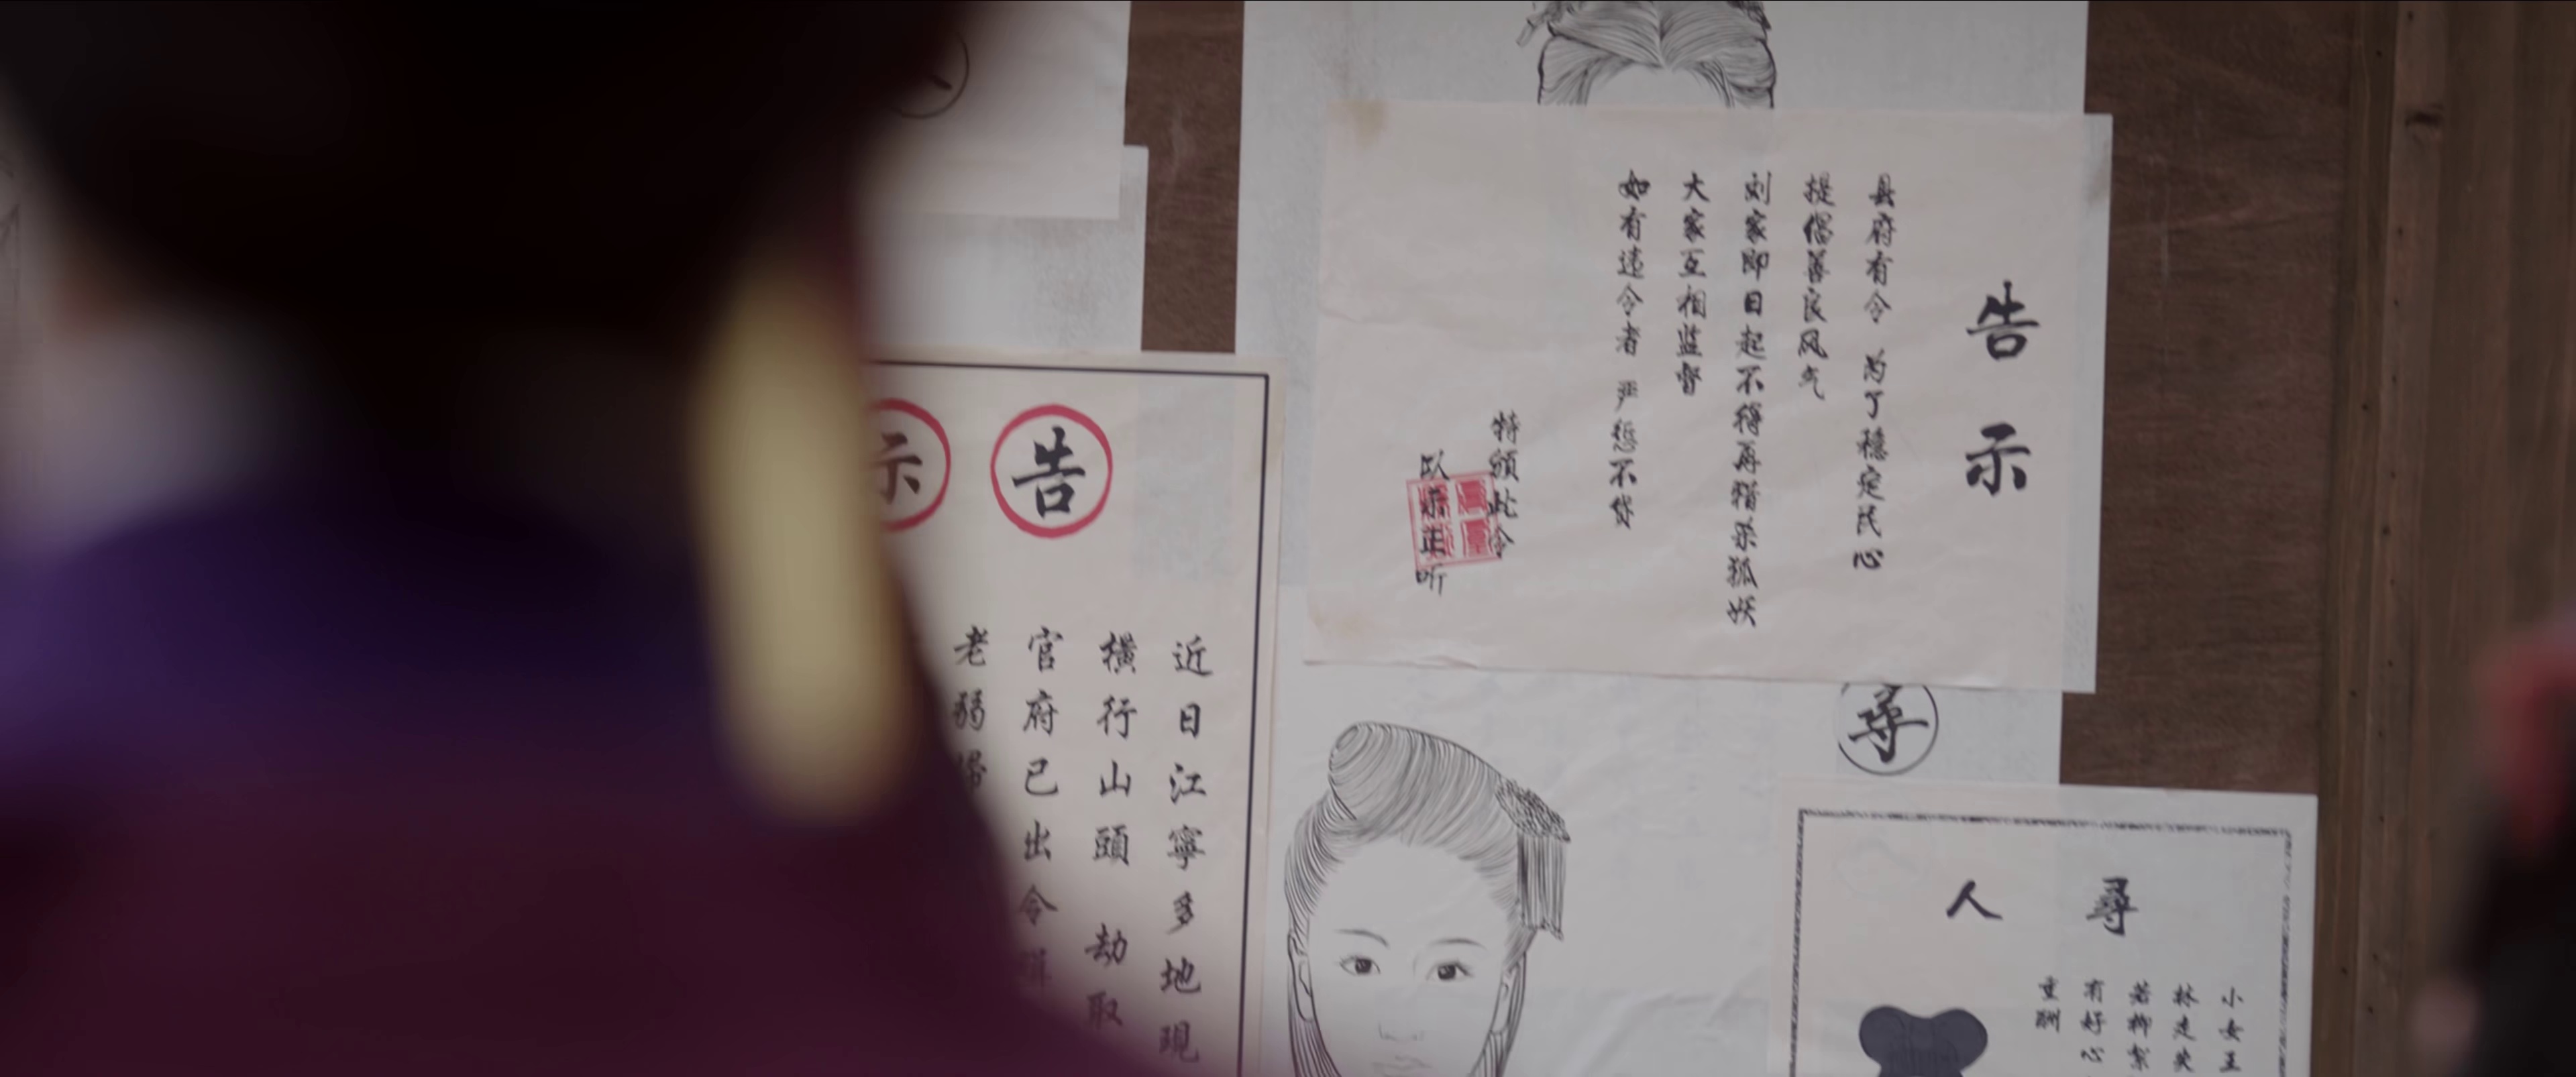 告示
县府有令 为了稳定民心
提倡善良风气
刘家即日起不得再猎杀狐妖
大家互相监督
如有违令者 严惩不贷
特颁此令
以示正听
告示
近日江寧多地現
橫行山頭 劫取
官府已出令
老弱婦
尋
尋人
小女王
林走失
若柳絮
有好心
重酬